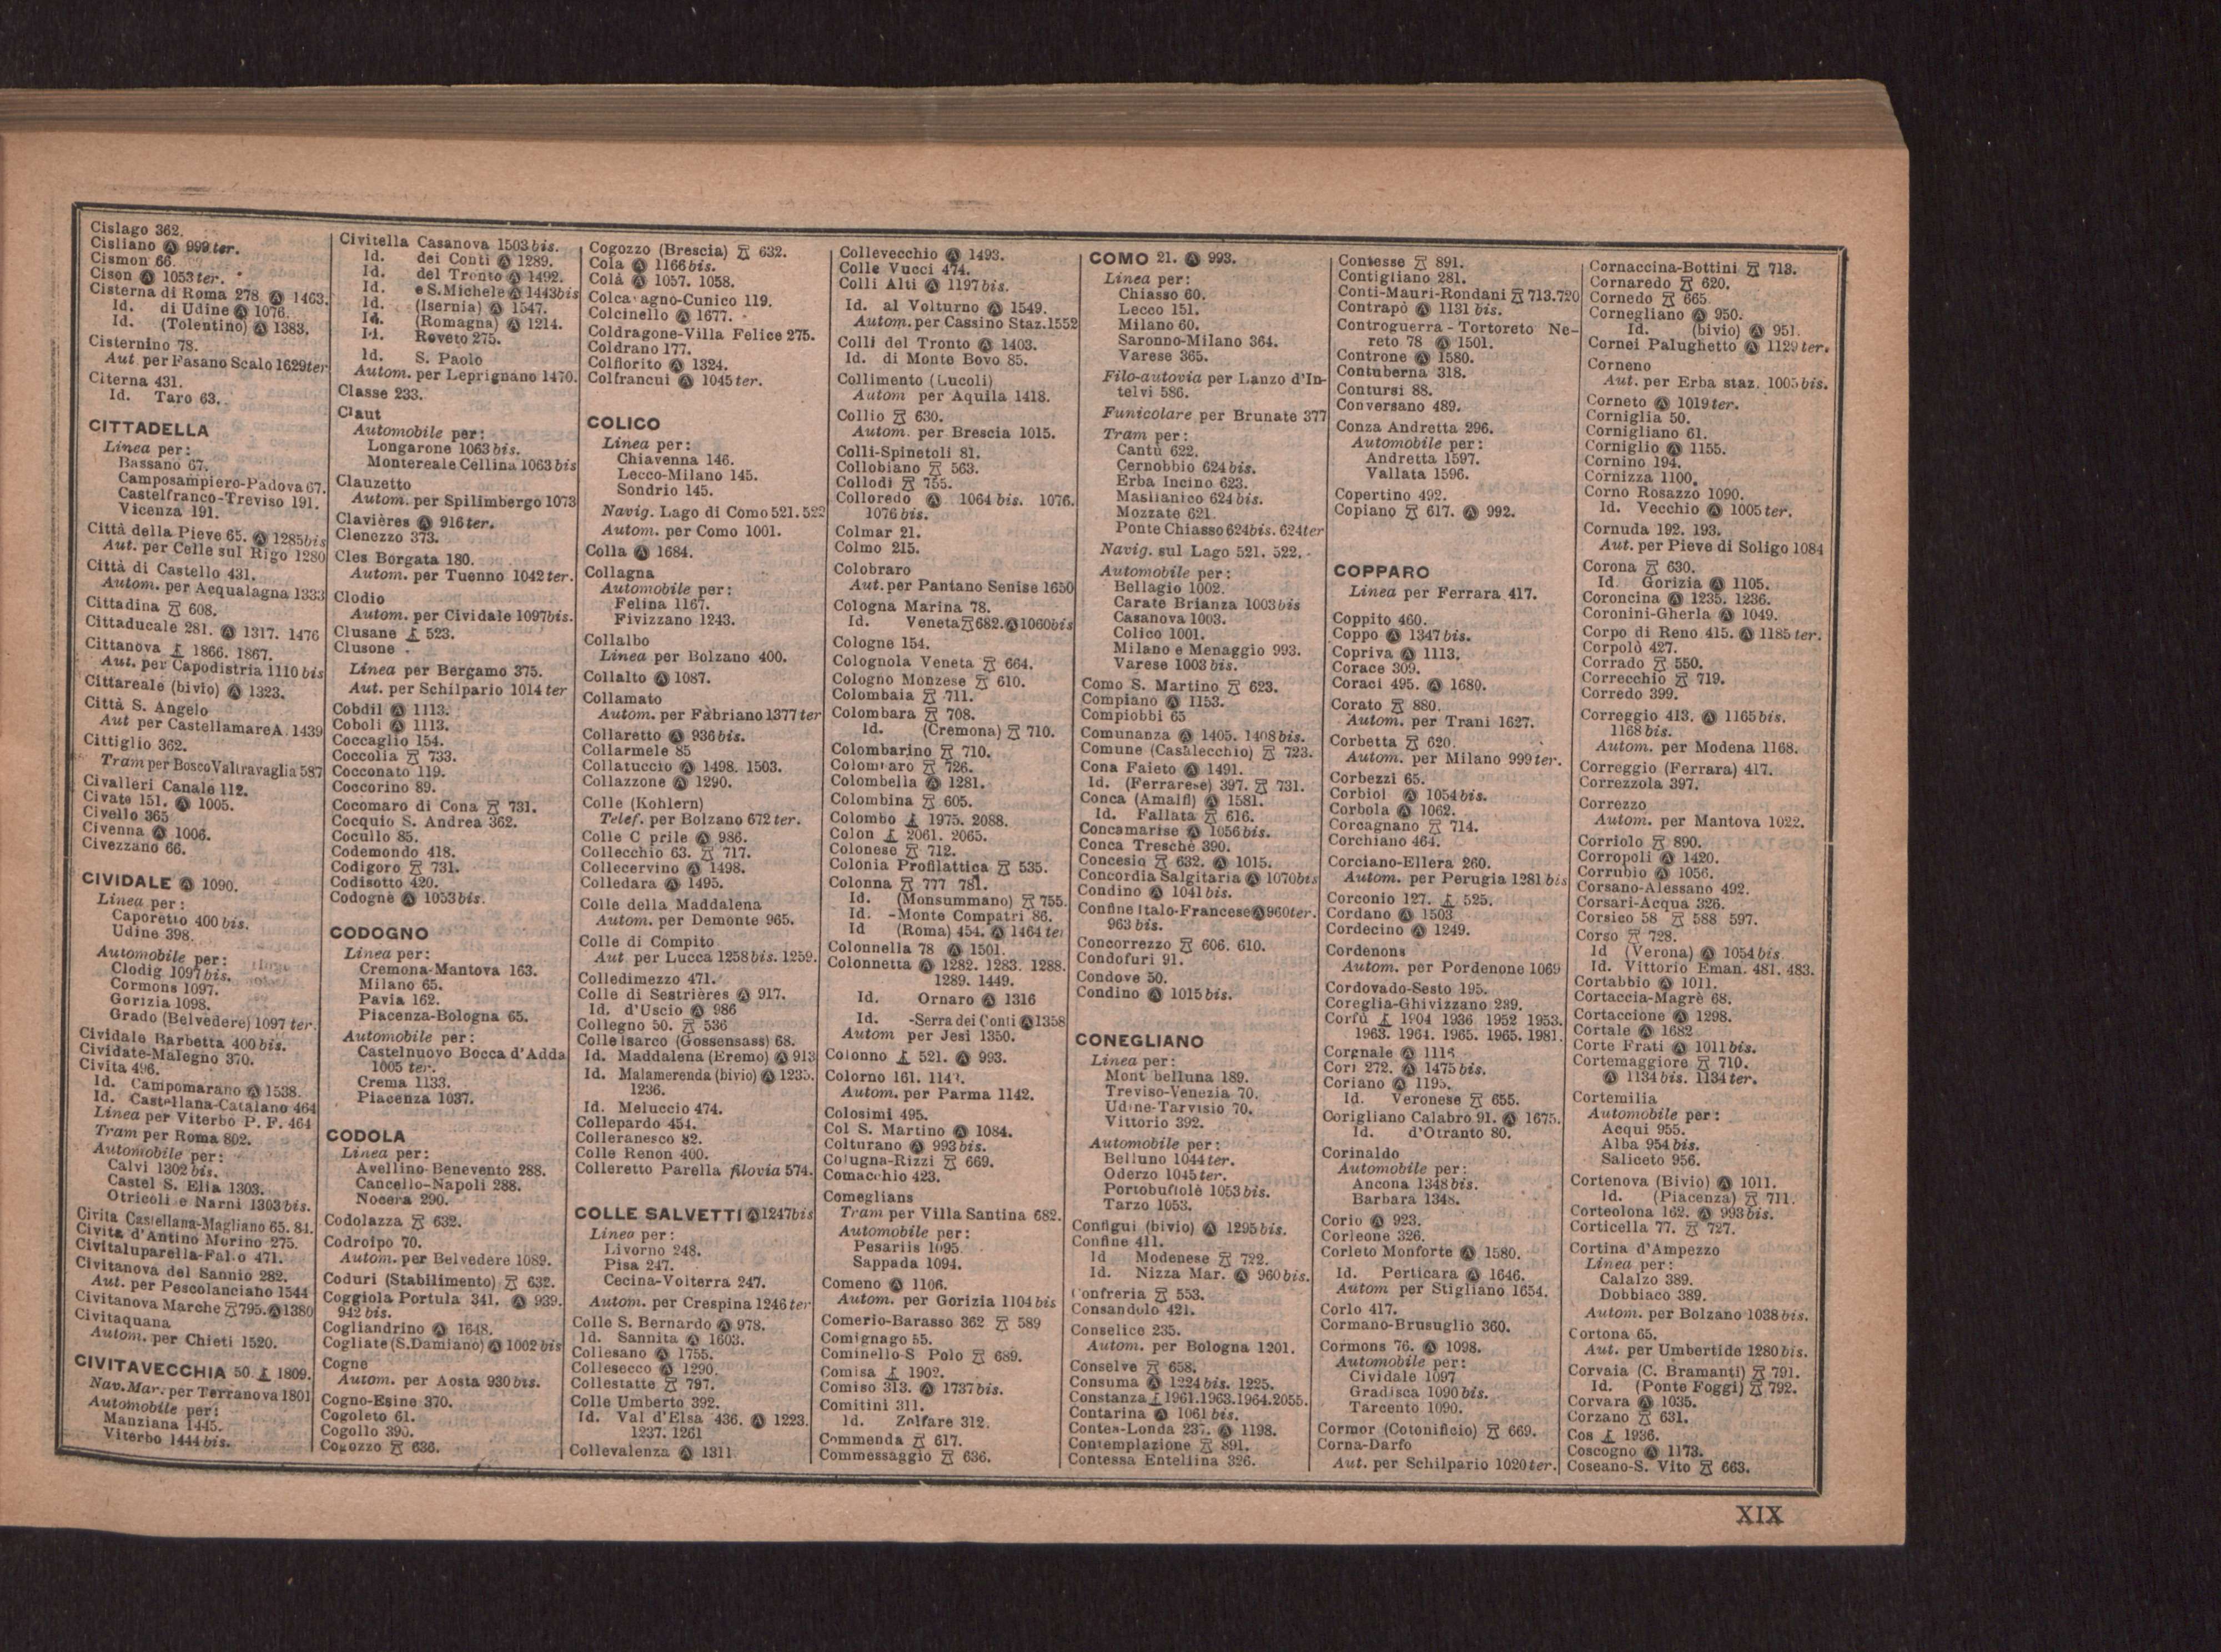 Cislago 362.
Cisliano Ⓐ 999 ter.
Cismon 66.
Cison Ⓐ 1053 ter.
Cisterna di Roma 278 Ⓐ 1463.
Id. di Udine Ⓐ 1076.
Id. (Tolentino) Ⓐ 1383.
Cisternino 78.
Aut. per Fasano Scalo 1629 ter
Citerna 431.
Id. Taro 63.
CITTADELLA
Linea per:
Bassano 67.
Camposampiero-Padova 67.
Castelfranco-Treviso 191.
Vicenza 191.
Città della Pieve 65. Ⓐ 1285 bis
Aut. per Celle sul Rigo 1280
Città di Castello 431.
Autom. per Acqualagna 1333
Cittadina 608.
Cittaducale 281. Ⓐ 1317. 1476
Cittanova 1866. 1867.
Aut. per Capodistria 1110 bis
Cittareale (bivio) Ⓐ 1323.
Città S. Angelo
Aut per Castellamare A. 1439
Cittiglio 362.
Tram per Bosco Valtravaglia 587
Civalleri Canale 112.
Civate 151. Ⓐ 1005.
Civello 365
Civenna Ⓐ 1006.
Civezzano 66.
CIVIDALE Ⓐ 1090.
Linea per:
Caporetto 400 bis.
Udine 398.
Automobile per:
Clodig 1097 bis.
Cormons 1097.
Gorizia 1098.
Grado (Belvedere) 1097 ter.
Cividale Barbetta 400 bis.
Cividate-Malegno 370.
Civita 496.
Id. Campomarano Ⓐ 1538.
Id. Castellana-Catalano 464
Linea per Viterbo P. F. 464
Tram per Roma 802.
Automobile per:
Calvi 1302 bis.
Castel S. Elia 1303.
Otricoli e Narni 1303 bis.
Civita Castellana-Magliano 65. 84.
Civita d'Antino Morino 275.
Civitaluparella-Fallo 471.
Civitanova del Sannio 282.
Aut. per Pescolanciano 1544
Civitanova Marche 795. Ⓐ 1380
Civitaquana
Autom. per Chieti 1520.
CIVITAVECCHIA 50. 1809.
Nav. Mar. per Terranova 1801
Automobile per:
Manziana 1445.
Viterbo 1444 bis.
Civitella Casanova 1503 bis.
Id. dei Conti Ⓐ 1289.
Id. del Tronto Ⓐ 1492.
Id. e S. Michele Ⓐ 1443 bis
Id. (Isernia) Ⓐ 1547.
Id. (Romagna) Ⓐ 1214.
Id. Roveto 275.
Id. S. Paolo
Autom. per Leprignano 1470.
Classe 233.
Claut
Automobile per:
Longarone 1063 bis.
Montereale Cellina 1063 bis
Clauzetto
Autom. per Spilimbergo 1073
Clavières Ⓐ 916 ter.
Clenezzo 373.
Cles Borgata 180.
Autom. per Tuenno 1042 ter.
Clodio
Autom. per Cividale 1097 bis.
Clusane 523.
Clusone
Linea per Bergamo 375.
Aut. per Schilpario 1014 ter
Cobdil Ⓐ 1113.
Coboli Ⓐ 1113.
Coccaglio 154.
Coccolia 733.
Cocconato 119.
Coccorino 89.
Cocomaro di Cona 731.
Cocquio S. Andrea 362.
Cocullo 85.
Codemondo 418.
Codigoro 731.
Codisotto 420.
Codognè Ⓐ 1053 bis.
CODOGNO
Linea per:
Cremona-Mantova 163.
Milano 65.
Pavia 162.
Piacenza-Bologna 65.
Automobile per:
Castelnuovo Bocca d'Adda
1005 ter.
Crema 1133.
Piacenza 1037.
CODOLA
Linea per:
Avellino-Benevento 288.
Cancello-Napoli 288.
Nocera 290.
Codolazza 632.
Codroipo 70.
Autom. per Belvedere 1089.
Coduri (Stabilimento) 632.
Coggiola Portula 341. Ⓐ 939.
942 bis.
Cogliandrino Ⓐ 1648.
Cogliate (S. Damiano) Ⓐ 1002 bis
Cogne
Autom. per Aosta 930 bis.
Cogno-Esine 370.
Cogoleto 61.
Cogollo 390.
Cogozzo 636.
Cogozzo (Brescia) 632.
Cola Ⓐ 1166 bis.
Colà Ⓐ 1057. 1058.
Colca agno-Cunico 119.
Colcinello Ⓐ 1677.
Coldragone-Villa Felice 275.
Coldrano 177.
Colfiorito Ⓐ 1324.
Colfrancui Ⓐ 1045 ter.
COLICO
Linea per:
Chiavenna 146.
Lecco-Milano 145.
Sondrio 145.
Navig. Lago di Como 521. 522
Autom. per Como 1001.
Colla Ⓐ 1684.
Collagna
Automobile per:
Felina 1167.
Fivizzano 1243.
Collalbo
Linea per Bolzano 400.
Collalto Ⓐ 1087.
Collamato
Autom. per Fabriano 1377 ter
Collaretto Ⓐ 936 bis.
Collarmele 85
Collatuccio Ⓐ 1498. 1503.
Collazzone Ⓐ 1290.
Colle (Kohlern)
Telef. per Bolzano 672 ter.
Colle C prile Ⓐ 986.
Collecchio 63. 717.
Collecervino Ⓐ 1498.
Colledara Ⓐ 1495.
Colle della Maddalena
Autom. per Demonte 965.
Colle di Compito
Aut per Lucca 1258 bis. 1259.
Colledimezzo 471.
Colle di Sestrières Ⓐ 917.
Id. d'Uscio Ⓐ 986
Collegno 50. 536
Colle Isarco (Gossensass) 68.
Id. Maddalena (Eremo) Ⓐ 913
Id. Malamerenda (bivio) Ⓐ 1235.
1236.
Id. Meluccio 474.
Collepardo 454.
Colleranesco 82.
Colle Renon 400.
Colleretto Parella filovia 574.
COLLE SALVETTI Ⓐ 1247 bis
Linea per:
Livorno 248.
Pisa 247.
Cecina-Volterra 247.
Autom. per Crespina 1246 ter
Colle S. Bernardo Ⓐ 978.
Id. Sannita Ⓐ 1603.
Collesano Ⓐ 1755.
Collesecco Ⓐ 1290.
Collestatte 797.
Colle Umberto 392.
Id. Val d'Elsa 436. Ⓐ 1223.
1237. 1261
Collevalenza Ⓐ 1311
Collevecchio Ⓐ 1493.
Colle Vucci 474.
Colli Alti Ⓐ 1197 bis.
Id. al Volturno Ⓐ 1549.
Autom. per Cassino Staz. 1552
Colli del Tronto Ⓐ 1403.
Id. di Monte Bovo 85.
Collimento (Lucoli)
Autom per Aquila 1418.
Collio 630.
Autom. per Brescia 1015.
Colli-Spinetoli 81.
Collobiano 563.
Collodi 755.
Colloredo Ⓐ 1064 bis. 1076.
1076 bis.
Colmar 21.
Colmo 215.
Colobraro
Aut. per Pantano Senise 1650
Cologna Marina 78.
Id. Veneta 682. Ⓐ 1060 bis
Cologne 154.
Colognola Veneta 664.
Cologno Monzese 610.
Colombaia 711.
Colombara 708.
Id. (Cremona) 710.
Colombarino 710.
Colombaro 726.
Colombella Ⓐ 1281.
Colombina 605.
Colombo 1975. 2088.
Colon 2061. 2065.
Colonese 712.
Colonia Profilattica 535.
Colonna 777 781.
Id. (Monsummano) 755.
Id. -Monte Compatri 86.
Id (Roma) 454. Ⓐ 1464 ter
Colonnella 78 Ⓐ 1501.
Colonnetta Ⓐ 1282. 1283. 1288.
1289. 1449.
Id. Ornaro Ⓐ 1316
Id. -Serra dei Conti Ⓐ 1358
Autom per Jesi 1350.
Colonno 521. Ⓐ 993.
Colorno 161.
Autom. per Parma 1142.
Colosimi 495.
Col S. Martino Ⓐ 1084.
Colturano Ⓐ 993 bis.
Colugna-Rizzi 669.
Comacchio 423.
Comeglians
Tram per Villa Santina 682.
Automobile per:
Pesariis 1095.
Sappada 1094.
Comeno Ⓐ 1106.
Autom. per Gorizia 1104 bis
Comerio-Barasso 362 589
Comignago 55.
Cominello-S Polo 689.
Comisa 1902.
Comiso 313. Ⓐ 1737 bis.
Comitini 311.
Id. Zolfare 312.
Commenda 617.
Commessaggio 636.
COMO 21. Ⓐ 993.
Linea per:
Chiasso 60.
Lecco 151.
Milano 60.
Saronno-Milano 364.
Varese 365.
Filo-autovia per Lanzo d'In-
telvi 586.
Funicolare per Brunate 377
Tram per:
Cantù 622.
Cernobbio 624 bis.
Erba Incino 623.
Maslianico 624 bis.
Mozzate 621.
Ponte Chiasso 624 bis. 624 ter
Navig. sul Lago 521. 522.
Automobile per:
Bellagio 1002.
Carate Brianza 1003 bis
Casanova 1003.
Colico 1001.
Milano e Menaggio 993.
Varese 1003 bis.
Como S. Martino 623.
Compiano Ⓐ 1153.
Compiobbi 65
Comunanza Ⓐ 1405. 1408 bis.
Comune (Casalecchio) 723.
Cona Faieto Ⓐ 1491.
Id. (Ferrarese) 397. 731.
Conca (Amalfi) Ⓐ 1581.
Id. Fallata 616.
Concamarise Ⓐ 1056 bis.
Conca Tresche 390.
Concesio 632. Ⓐ 1015.
Concordia Salgitaria Ⓐ 1070 bis
Condino Ⓐ 1041 bis.
Confine Italo-Francese Ⓐ 960 ter.
963 bis.
Concorrezzo 606. 610.
Condofuri 91.
Condove 50.
Condino Ⓐ 1015 bis.
CONEGLIANO
Linea per:
Mont belluna 189.
Treviso-Venezia 70.
Udine-Tarvisio 70.
Vittorio 392.
Automobile per:
Belluno 1044 ter.
Oderzo 1045 ter.
Portobufiolè 1053 bis.
Tarzo 1053.
Configui (bivio) Ⓐ 1295 bis.
Confine 411.
Id Modenese 722.
Id. Nizza Mar. Ⓐ 960 bis.
Confreria 553.
Consandolo 421.
Conselice 235.
Autom. per Bologna 1201.
Conselve 658.
Consuma Ⓐ 1224 bis. 1225.
Constanza 1961. 1963. 1964. 2055.
Contarina Ⓐ 1061 bis.
Contea-Londa 237. Ⓐ 1198.
Contemplazione 891.
Contessa Entellina 326.
Contesse 891.
Contigliano 281.
Conti-Mauri-Rondani 713. 720
Contrapò Ⓐ 1131 bis.
Controguerra - Tortoreto Ne-
reto 78 Ⓐ 1501.
Controne Ⓐ 1580.
Contuberna 318.
Contursi 88.
Conversano 489.
Conza Andretta 296.
Automobile per:
Andretta 1597.
Vallata 1596.
Copertino 492.
Copiano 617. Ⓐ 992.
COPPARO
Linea per Ferrara 417.
Coppito 460.
Coppo Ⓐ 1347 bis.
Copriva Ⓐ 1113.
Corace 309.
Coraci 495. Ⓐ 1680.
Corato 880.
Autom. per Trani 1627.
Corbetta 620.
Autom. per Milano 999 ter.
Corbezzi 65.
Corbiol Ⓐ 1054 bis.
Corbola Ⓐ 1062.
Corcagnano 714.
Corchiano 464.
Corciano-Ellera 260.
Autom. per Perugia 1281 bis
Corconio 127. 525.
Cordano Ⓐ 1503
Cordecino Ⓐ 1249.
Cordenons
Autom. per Pordenone 1069
Cordovado-Sesto 195.
Coreglia-Ghivizzano 289.
Corfù 1904 1936 1952 1953.
1963. 1964. 1965. 1965. 1981.
Corgnale Ⓐ 1115
Cori 272. Ⓐ 1475 bis.
Coriano Ⓐ 1195.
Id. Veronese 655.
Corigliano Calabro 91. Ⓐ 1675.
Id. d'Otranto 80.
Corinaldo
Automobile per:
Ancona 1348 bis.
Barbara 1348.
Corio Ⓐ 923.
Corleone 326.
Corleto Monforte Ⓐ 1580.
Id. Perticara Ⓐ 1646.
Autom per Stigliano 1654.
Corlo 417.
Cormano-Brusuglio 360.
Cormons 76. Ⓐ 1098.
Automobile per:
Cividale 1097
Gradisca 1090 bis.
Tarcento 1090.
Cormor (Cotonificio) 669.
Corna-Darfo
Aut. per Schilpario 1020 ter.
Cornaccina-Bottini 713.
Cornaredo 620.
Cornedo 665
Cornegliano Ⓐ 950.
Id. (bivio) Ⓐ 951.
Cornei Palughetto Ⓐ 1129 ter.
Corneno
Aut. per Erba staz. 1005 bis.
Corneto Ⓐ 1019 ter.
Corniglia 50.
Cornigliano 61.
Corniglio Ⓐ 1155.
Cornino 194.
Cornizza 1100.
Corno Rosazzo 1090.
Id. Vecchio Ⓐ 1005 ter.
Cornuda 192. 193.
Aut. per Pieve di Soligo 1084
Corona 630.
Id. Gorizia Ⓐ 1105.
Coroncina Ⓐ 1235. 1236.
Coronini-Gherla Ⓐ 1049.
Corpo di Reno 415. Ⓐ 1185 ter.
Corpolò 427.
Corrado 550.
Correcchio 719.
Corredo 399.
Correggio 413. Ⓐ 1165 bis.
1168 bis.
Autom. per Modena 1168.
Correggio (Ferrara) 417.
Correzzola 397.
Correzzo
Autom. per Mantova 1022.
Corriolo 890.
Corropoli Ⓐ 1420.
Corrubio Ⓐ 1056.
Corsano-Alessano 492.
Corsari-Acqua 326.
Corsico 58 588 597.
Corso 728.
Id (Verona) Ⓐ 1054 bis
Id. Vittorio Eman. 481. 483.
Cortabbio Ⓐ 1011.
Cortaccia-Magrè 68.
Cortaccione Ⓐ 1298.
Cortale Ⓐ 1682
Corte Frati Ⓐ 1011 bis.
Cortemaggiore 710.
Ⓐ 1134 bis. 1134 ter.
Cortemilia
Automobile per:
Acqui 955.
Alba 954 bis.
Saliceto 956.
Cortenova (Bivio) Ⓐ 1011.
Id. (Piacenza) 711.
Corteolona 162. Ⓐ 993 bis.
Corticella 77. 727.
Cortina d'Ampezzo
Linea per:
Calalzo 389.
Dobbiaco 389.
Autom. per Bolzano 1038 bis.
Cortona 65.
Aut. per Umbertide 1280 bis.
Corvaia (C. Bramanti) 791.
Id. (Ponte Foggi) 792.
Corvara Ⓐ 1035.
Corzano 631.
Cos 1936.
Coscogno Ⓐ 1173.
Coseano-S. Vito 663.
XIX